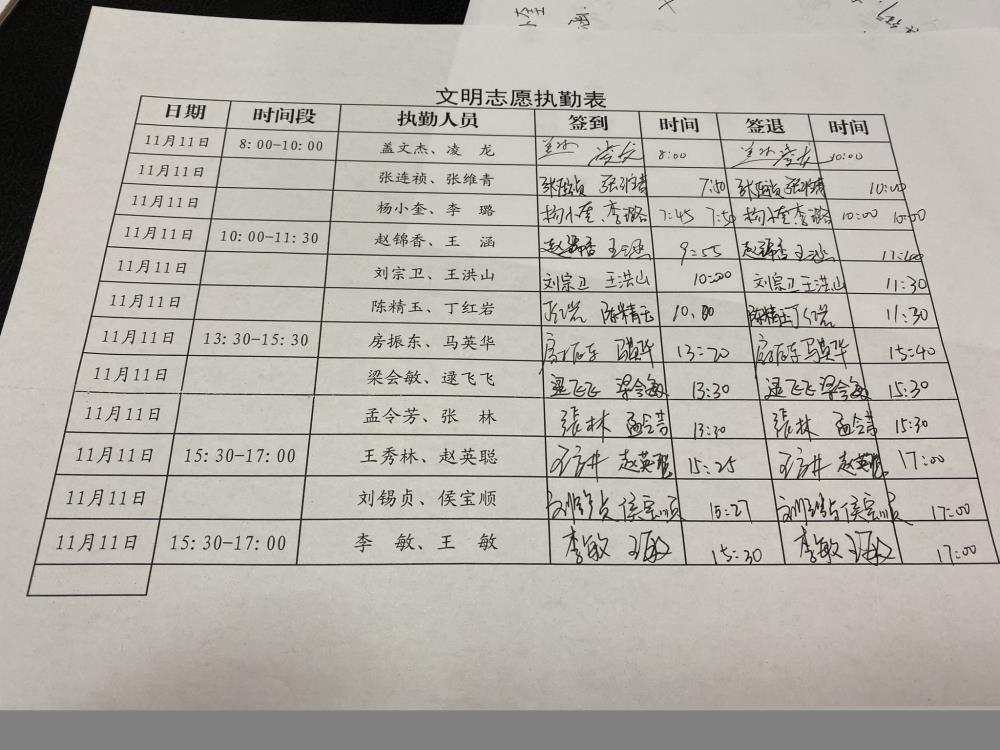 文明志愿执勤表
日期 时间段 执勤人员 签到 时间 签退 时间
11月11日 8:00-10:00 盖文杰、凌 龙 8:00 10:00
11月11日 张连祯、张维青 张连贞 张维青 7:50 张连贞 张维青 10:00
11月11日 杨小奎、李 璐 杨小奎 李璐 7:45 7:50 杨小奎 李璐 10:00 10:00
11月11日 10:00-11:30 赵锦香、王 涵 赵锦香 王涵 9:55 赵锦香 王涵
11月11日 刘宗卫、王洪山 刘宗卫 王洪山 10:00 刘宗卫 王洪山 11:30
11月11日 陈精玉、丁红岩 丁红岩 陈精玉 10.00 陈精玉 丁红岩 11:30
11月11日 13:30-15:30 房振东、马英华 房振东 马英华 13:20 房振东 马英华 15:40
11月11日 梁会敏、逯飞飞 逯飞飞 梁会敏 13:30 逯飞飞 梁会敏 15:30
11月11日 孟令芳、张 林 張林 孟令芳 13:30 張林 孟令芳 15:30
11月11日 15:30-17:00 王秀林、赵英聪 赵英聪 15:25 赵英聪 17:00
11月11日 刘锡贞、侯宝顺 刘锡贞 侯宝顺 15:27 刘锡贞 侯宝顺 17:00
11月11日 15:30-17:00 李 敏、王 敏 李敏 王敏 15:30 李敏 王敏 17:00